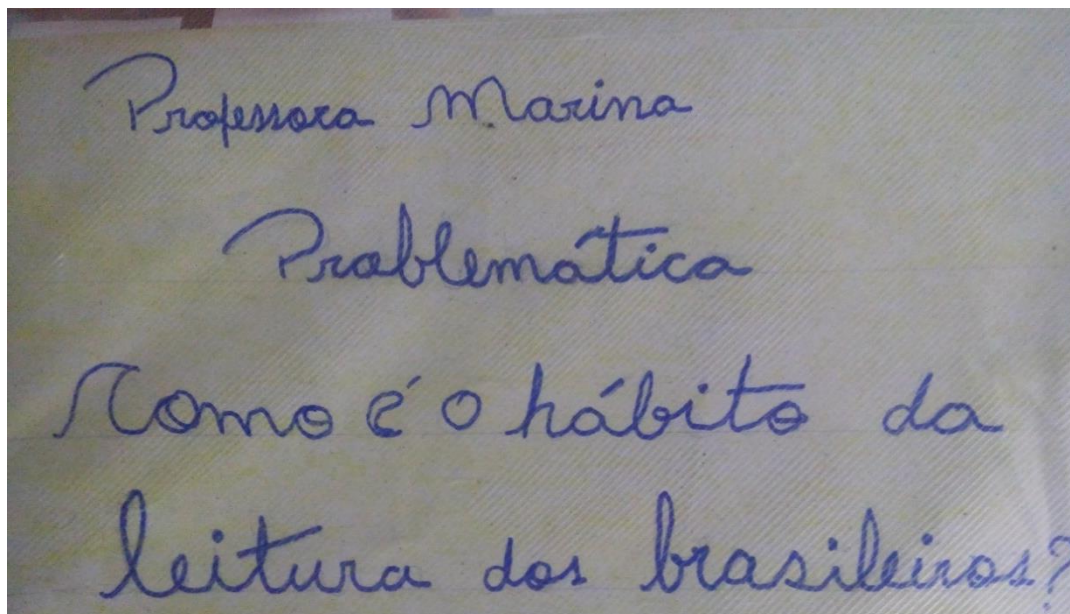 Professora Marina
Problemática
Como é o hábito da
leitura dos brasileiros?